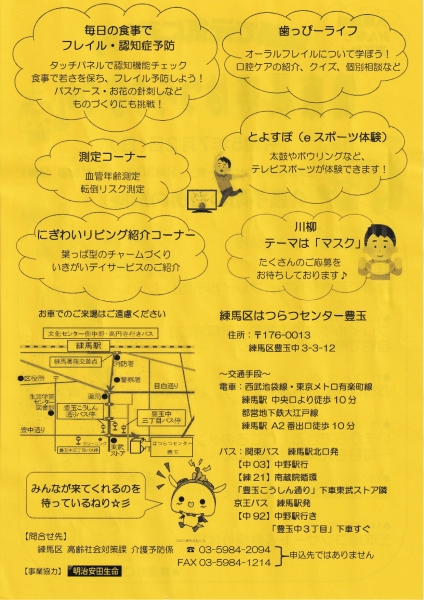 毎日の食事で
フレイル・認知症予防
タッチパネルで認知機能チェック
食事で若さを保ち、フレイル予防しよう！
パスケース・お花の針刺しなど
ものづくりにも挑戦！
歯っぴーライフ
オーラルフレイルについて学ぼう！
口腔ケアの紹介、クイズ、個別相談など
測定コーナー
血管年齢測定
転倒リスク測定
とよすぽ（eスポーツ体験）
太鼓やボウリングなど、
テレビスポーツが体験できます！
にぎわいリビング紹介コーナー
葉っぱ型のチャームづくり
いきがいデイサービスのご紹介
川柳
テーマは「マスク」
たくさんのご応募を
お待ちしております♪
お車でのご来場はご遠慮ください
練馬駅
○区役所
消防署
警察署
薬局
目白通り
豊玉こうしん
通りバス停
豊玉中
三丁目バス停
豊中通り
東武
ストア
はつらつセンター
みんなが来てくれるのを
待っているねり☆彡
練馬区はつらつセンター豊玉
住所：〒176-0013
練馬区豊玉中3-3-12
～交通手段～
電車：西武池袋線・東京メトロ有楽町線
練馬駅 中央口より徒歩10分
都営地下鉄大江戸線
練馬駅 A2番出口徒歩10分
バス：関東バス 練馬駅北口発
【中03】中野駅行
【練21】南蔵院循環
「豊玉こうしん通り」下車東武ストア隣
京王バス 練馬駅発
【中92】中野駅行き
「豊玉中3丁目」下車すぐ
【問合せ先】
練馬区 高齢社会対策課 介護予防係 ☎ 03-5984-2094
FAX 03-5984-1214
申込先ではありません
【事業協力】 明治安田生命